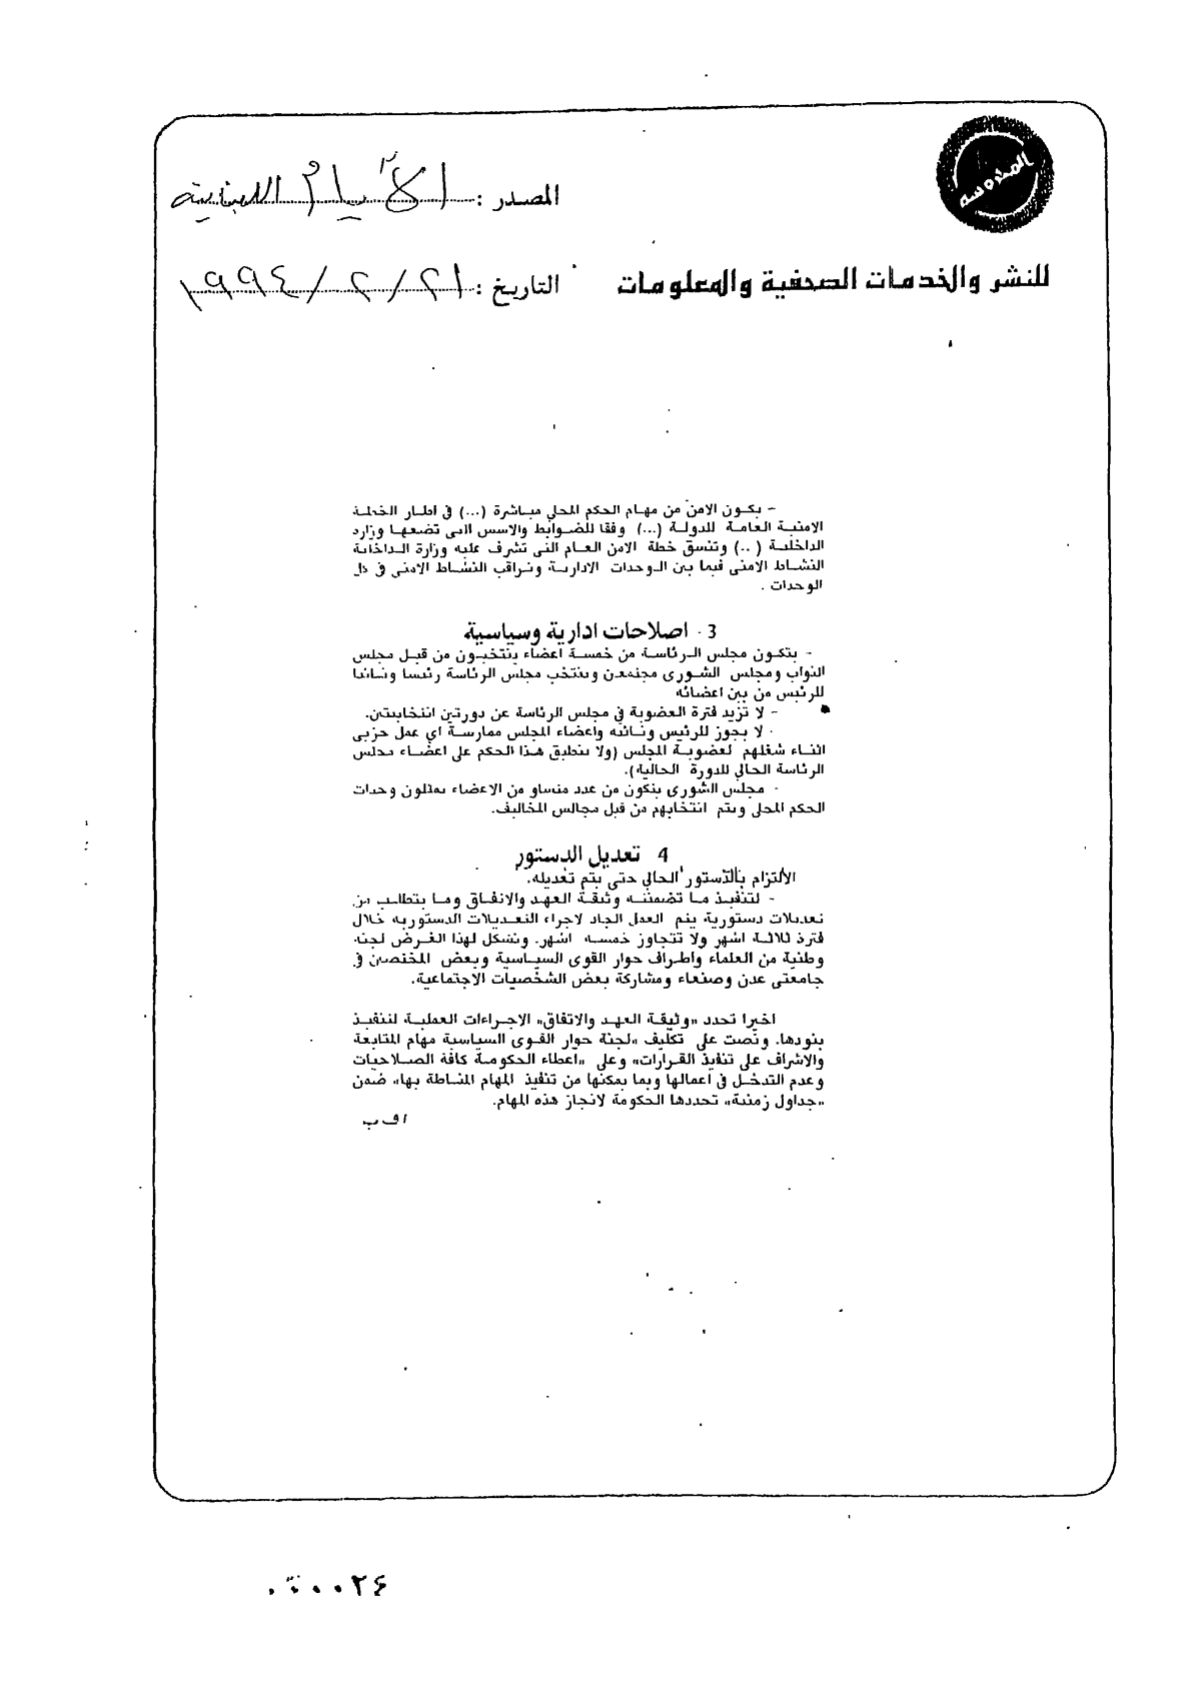 المحروسة
المصدر : الأيام اللبنانية
للنشر والخدمات الصحفية والمعلومات
التاريخ : ٢١ / ٢ / ١٩٩٤
- يكون الامن من مهام الحكم المحلي مباشرة (...) في اطار الخطة
الامنية العامة للدولة (...) وفقا للضوابط والاسس التي تضعها وزارة
الداخلية (..) وتنسق خطة الامن العام التي تشرف عليه وزارة الداخلية
النشاط الامني فيما بين الوحدات الادارية وتراقب النشاط الامني في كل
الوحدات .
3 - اصلاحات ادارية وسياسية
- يتكون مجلس الرئاسة من خمسة اعضاء ينتخبون من قبل مجلس
النواب ومجلس الشورى مجتمعين وينتخب مجلس الرئاسة رئيسا ونائبا
للرئيس من بين اعضائه
- لا تزيد فترة العضوية في مجلس الرئاسة عن دورتين انتخابيتين.
- لا يجوز للرئيس ونائبه واعضاء المجلس ممارسة اي عمل حزبي
اثناء شغلهم لعضوية المجلس (ولا ينطبق هذا الحكم على اعضاء مجلس
الرئاسة الحالي للدورة الحالية).
- مجلس الشورى يتكون من عدد متساو من الاعضاء يمثلون وحدات
الحكم المحلي ويتم انتخابهم من قبل مجالس المخاليف.
4 تعديل الدستور
الالتزام بالدستور الحالي حتى يتم تعديله.
- لتنفيذ ما تضمنته وثيقة العهد والاتفاق وما يتطلب من
تعديلات دستورية يتم العمل الجاد لاجراء التعديلات الدستورية خلال
فترة ثلاثة اشهر ولا تتجاوز خمسة اشهر. وتشكل لهذا الغرض لجنة
وطنية من العلماء واطراف حوار القوى السياسية وبعض المختصين في
جامعتي عدن وصنعاء ومشاركة بعض الشخصيات الاجتماعية.
اخيرا تحدد «وثيقة العهد والاتفاق» الإجراءات العملية لتنفيذ
بنودها. ونصت على تكليف «لجنة حوار القوى السياسية مهام المتابعة
والاشراف على تنفيذ القرارات» وعلى «اعطاء الحكومة كافة الصلاحيات
وعدم التدخل في اعمالها وبما يمكنها من تنفيذ المهام المناطة بها» ضمن
«جداول زمنية» تحددها الحكومة لانجاز هذه المهام.
ا ف ب